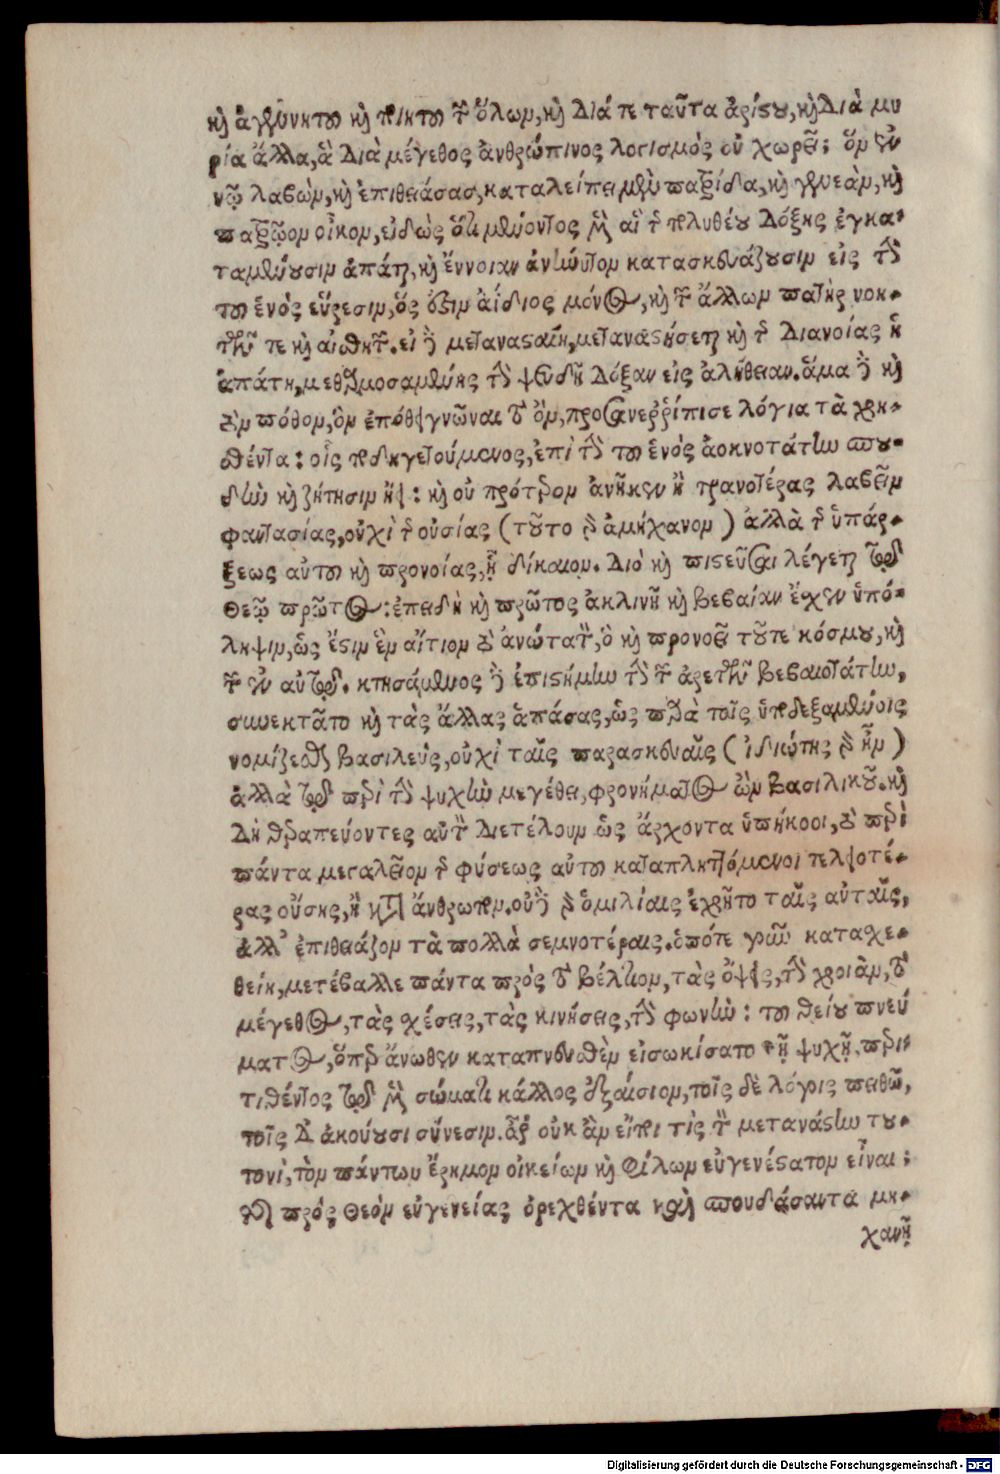 καὶ ἀγεννήτου καὶ ποιητοῦ τῶν ὅλων, καὶ διά τε ταῦτα ἀρίστου, καὶ διὰ μυ
ρία ἄλλα, ἃ διὰ μέγεθος ἀνθρώπινος λογισμὸς οὐ χωρεῖ; ὃν ἐν
νῷ λαβὼν, καὶ ἐπιθειάσας, καταλείπει μὲν πατρίδα, καὶ γενεὰν, καὶ
πατρῷον οἶκον, εἰδὼς ὅτι μένοντος μὲν αἱ τῆς πολυθέου δόξης ἐγκα-
ταμένουσιν ἀπάται, καὶ ἔννοιαν ἀνήνυτον κατασκευάζουσιν εἰς τὴν
τοῦ ἑνὸς εὕρεσιν, ὅς ἐστιν ἀΐδιος μόνος, καὶ τῶν ἄλλων πατὴρ νοη-
τῶν τε καὶ αἰσθητῶν. εἰ δὲ μετανασταίη, μεταναστήσεται καὶ τῆς διανοίας ἡ
ἀπάτη, μεθαρμοσαμένης τὴν ψευδῆ δόξαν εἰς ἀλήθειαν. ἅμα δὲ καὶ
τὸν πόθον, ὃν ἐπόθει γνῶναι τὸ ὂν, προσανεῤῥίπισε λόγια τὰ χρη-
σθέντα: οἷς ποδηγετούμενος, ἐπὶ τὴν τοῦ ἑνὸς ἀοκνοτάτῳ σπου-
δῇ καὶ ζήτησιν ᾔει: καὶ οὐ πρότερον ἀνῆκεν ἢ τρανοτέρας λαβεῖν
φαντασίας, οὐχὶ τῆς οὐσίας (τοῦτο γὰρ ἀμήχανον) ἀλλὰ τῆς ὑπάρ-
ξεως αὐτοῦ καὶ προνοίας, ᾗ δίκαιον. Διὸ καὶ πιστεῦσαι λέγεται τῷ
Θεῷ πρῶτος: ἐπειδὴ καὶ πρῶτος ἀκλινῆ καὶ βεβαίαν ἔχεν ὑπό-
ληψιν, ὡς ἔστιν ἓν αἴτιον τὸ ἀνώτατον, ὃ καὶ προνοεῖ τοῦτε κόσμου, καὶ
τῶν ἐν αὐτῷ. κτησάμενος δὲ ἐπιστήμην τὴν τῶν ἀρετῶν βεβαιοτάτην,
συνεκτᾶτο καὶ τὰς ἄλλας ἁπάσας, ὡς παρὰ τοῖς ὑποδεξαμένοις
νομίζεσθαι βασιλεὺς, οὐχὶ ταῖς παρασκευαῖς (ἰδιώτης γὰρ ἦν)
ἀλλὰ τῷ περὶ τὴν ψυχὴν μεγέθει, φρονήματος ὢν βασιλικοῦ. καὶ
δὴ θεραπεύοντες αὐτὸν διετέλουν ὡς ἄρχοντα ὑπήκοοι, τὸ περὶ
πάντα μεγαλεῖον τῆς φύσεως αὐτοῦ καταπληττόμενοι τελειοτέ-
ρας οὔσης, ἢ κατὰ ἄνθρωπον. οὐδὲ γὰρ ὁμιλίαις ἐχρῆτο ταῖς αὐταῖς,
ἀλλ' ἐπιθειάζον τὰ πολλὰ σεμνοτέραις. ὁπότε γοῦν κατασχε-
θείη, μετέβαλλε πάντα πρὸς τὸ βέλτιον, τὰς ὄψεις, τὴν χροιὰν, τὸ
μέγεθος, τὰς σχέσεις, τὰς κινήσεις, τὴν φωνήν: τοῦ θείου πνεύ
ματος, ὅπερ ἄνωθεν καταπνευσθὲν εἰσῳκίσατο τῇ ψυχῇ, περι-
τιθέντος τῷ μὲν σώματι κάλλος ἐξαίσιον, τοῖς δὲ λόγοις πειθὼ,
τοῖς δὲ ἀκούουσι σύνεσιν. ἆρ' οὐκ ἂν εἴποι τις τὸν μετανάστην του-
τονὶ, τὸν πάντων ἔρημον οἰκείων καὶ φίλων εὐγενέστατον εἶναι;
τῆς πρὸς Θεὸν εὐγενείας ὀρεχθέντα καὶ σπουδάσαντα μη-
χανῇ
Digitalisierung gefördert durch die Deutsche Forschungsgemeinschaft - DFG